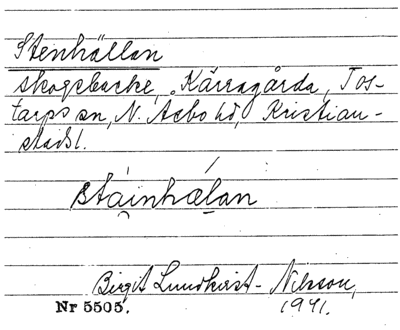 Stenhällan
skogsbacke, Kärragårda, Tos-
tarps sn, N. Åsbo hd, Kristian-
stads l.
stáinhælan
Birgit Lundkvist-Nilsson,
Nr 5505. 1941.